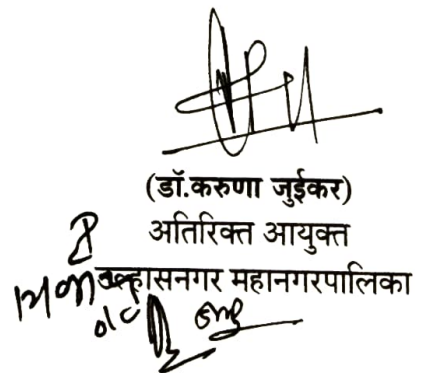 (डॉ.करुणा जुईकर)
अतिरिक्त आयुक्त
उल्हासनगर महानगरपालिका